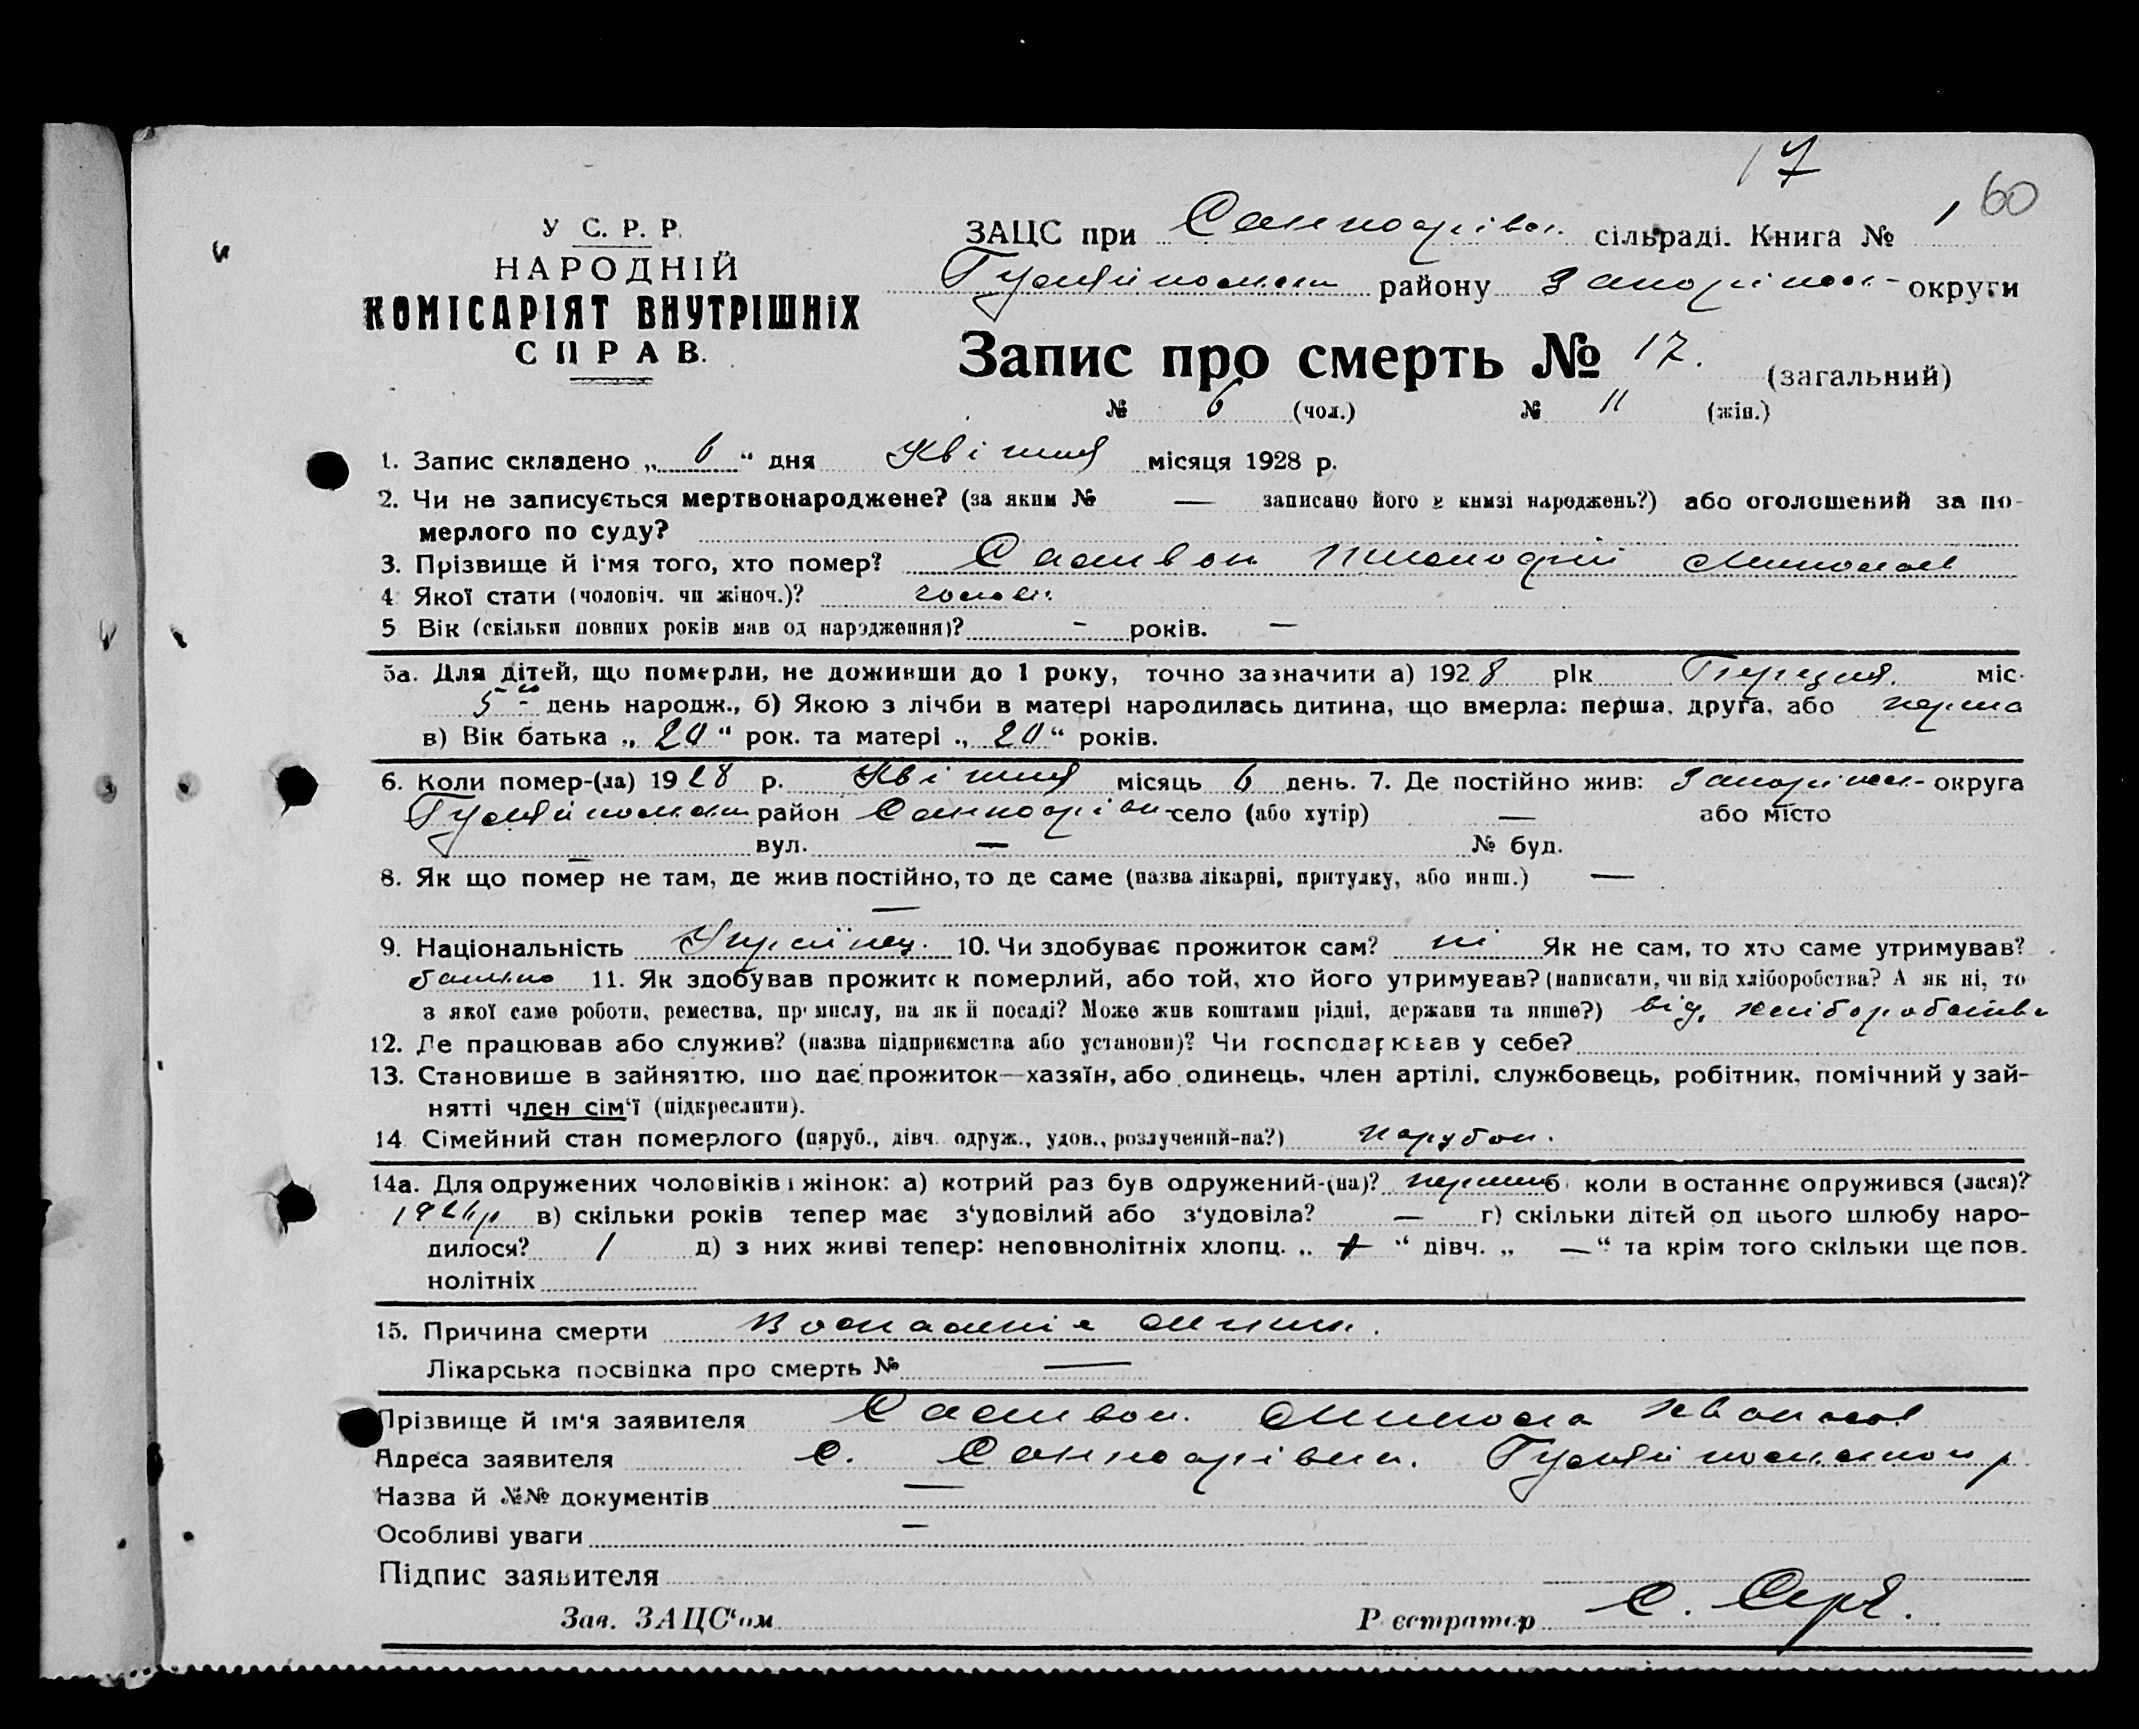 17
60
У С. Р. Р.
НАРОДНІЙ
КОМІСАРІЯТ ВНУТРІШНІХ
СПРАВ.
ЗАЦС при сільраді. Книга № 1
Гуляйпольськ району Запоріжськ- округи
Запис про смерть № 17. (загальний)
№ 6 (чол.) № 11 (жін.)
1. Запис складено „ 6 “ дня Квітня місяця 1928 р.
2. Чи не записується мертвонароджене? (за яким № — записано його в книзі народжень?) або оголошений за по-
мерлого по суду?
3. Прізвище й ім'я того, хто помер?
4 Якої стати (чоловіч. чи жіноч.)? чолов.
5 Вік (скільки повних років мав од народження)? - років. —
5а. Для дітей, що померли, не доживши до 1 року, точно зазначити а) 1928 рік міс.
5 день народж., б) Якою з лічби в матері народилась дитина, що вмерла: перша, друга, або перша
в) Вік батька „ 20 “ рок. та матері „ 20 “ років.
6. Коли помер-(ла) 1928 р. Квітня місяць 6 день. 7. Де постійно жив: Запоріжськ- округа
Гуляйпольськ район село (або хутір) — або місто
— вул. — № буд.
8. Як що помер не там, де жив постійно, то де саме (назва лікарні, притулку, або инш.) —
—
9. Національність Українец. 10. Чи здобуває прожиток сам? ні Як не сам, то хто саме утримував?
батько 11. Як здобував прожиток померлий, або той, хто його утримував? (написати, чи від хліборобства? А як ні, то
з якої саме роботи, ремества, промислу, на якій посаді? Може жив коштами рідні, держави та инше?) від хліборобства
12. Де працював або служив? (назва підприємства або установи)? Чи господарював у себе?
13. Становище в зайняттю, що дає прожиток—хазяїн, або одинець, член артілі, службовець, робітник, помічний у зай-
нятті член сім'ї (підкреслити).
14 Сімейний стан померлого (паруб., дівч. одруж., удов., розлучений-на?) парубок.
14а. Для одружених чоловіків і жінок: а) котрий раз був одружений-(на)? перший б) коли востаннє одружився (лася)?
в) скільки років тепер має з'удовілий або з'удовіла? — г) скільки дітей од цього шлюбу наро-
дилося? 1 д) з них живі тепер: неповнолітніх хлопц. „ “ дівч. „ — “ та крім того скільки ще пов.
нолітніх
15. Причина смерти Воспаленіе
Лікарська посвідка про смерть № —
Прізвище й ім'я заявителя
Адреса заявителя с. Гуляйпольського р
Назва й №№ документів —
Особливі уваги —
Підпис заявителя
Зав. ЗАЦС'ом Реєстратор